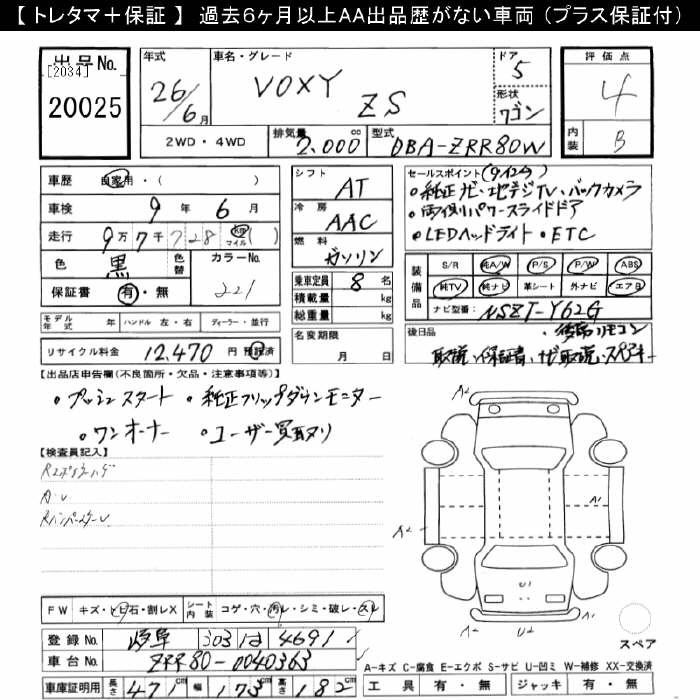 【 トレタマ＋保証 】 過去6ヶ月以上AA出品歴がない車両 （プラス保証付）
出品No. [2034] 20025
年式 26/6月
車名・グレード VOXY ZS
ドア 5
形状 ワゴン
評価点 4
内装 B
2WD・4WD 排気量 2,000cc 型式 DBA-ZRR80W
車歴 自家用・( )
車検 9年 6月
走行 9万7千728 km マイル ( )
色 黒 色替 カラーNo. 221
保証書 有・無
モデル年式 年 ハンドル 左・右 ディーラー・並行
リサイクル料金 12,470円 預託済
シフト AT
冷房 AAC
燃料 ガソリン
乗車定員 8名
積載量 kg
総重量 kg
名変期限 月 日
セールスポイント
・純正ナビ・地デジTV・バックカメラ
・両側パワースライドドア
・LEDヘッドライト・ETC
装備品 S/R 純A/W P/S P/W ABS
純TV 純ナビ 革シート 外ナビ エアB
ナビ型番: NSZT-Y62G
後日品 ・後席リモコン
取説・保証書・ナビ取説・スペアキー
【出品店申告欄(不良箇所・欠品・注意事項等)】
・プッシュスタート ・純正フリップダウンモニター
・ワンオーナー ・ユーザー買取り
【検査員記入】
A・U
A2
A2 A1
U1
A2 U2
FW キズ・トビ石・割レX シート内装 コゲ・穴・汚レ・シミ・破レ・スレ
登録No. 岐阜 303 は 4691
車台No. ZRR80-0040363
スペア
車庫証明用 長さ 471cm 幅 173cm 高さ 182cm
A-キズ C-腐食 E-エクボ S-サビ U-凹ミ W-補修 XX-交換済
工具 有・無 ジャッキ 有・無